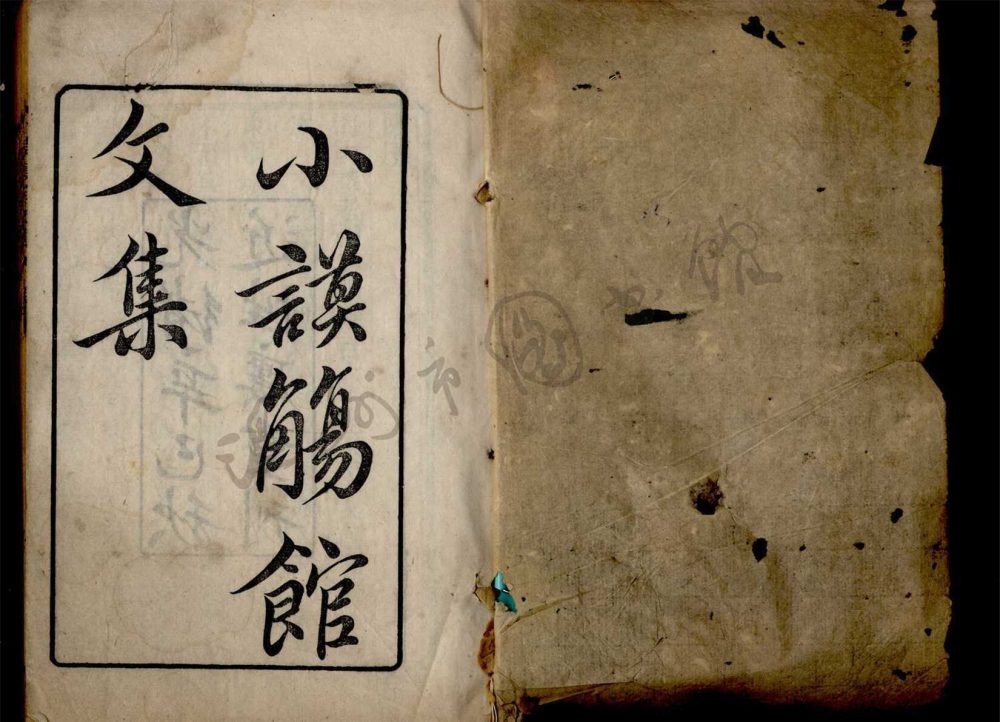 小謨觴館
文集